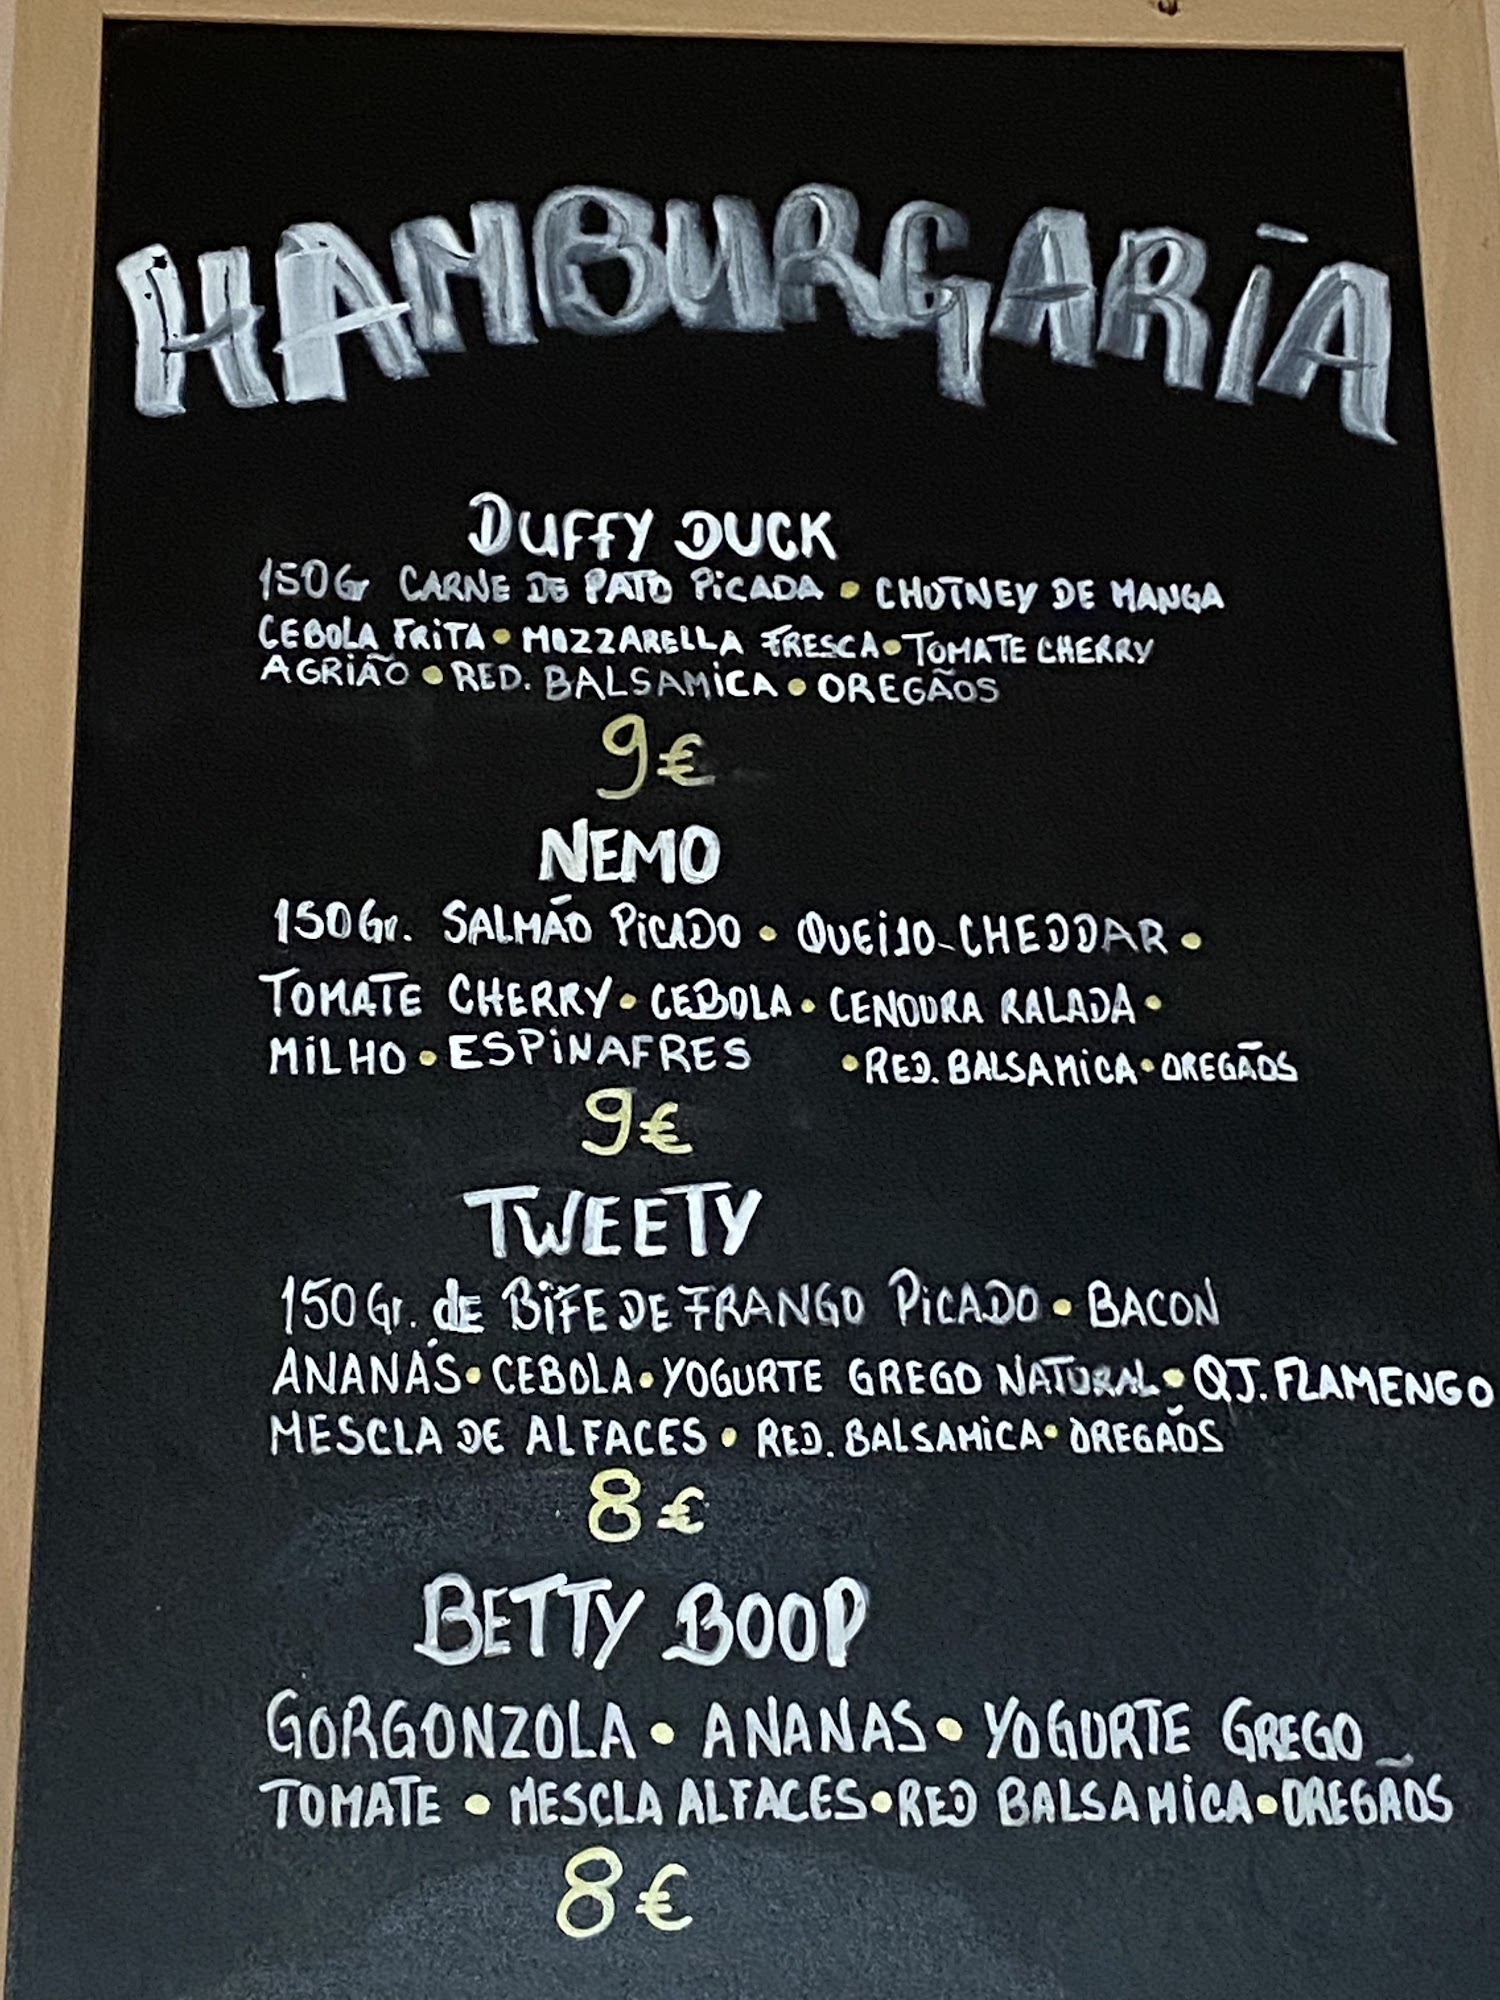 HAMBURGARIA
DUFFY DUCK
150Gr CARNE DE PATO PICADA • CHUTNEY DE MANGA
CEBOLA FRITA • MOZZARELLA FRESCA • TOMATE CHERRY
AGRIÃO • RED. BALSAMICA • OREGÃOS
9€
NEMO
150Gr. SALMÃO PICADO • QUEIJO-CHEDDAR •
TOMATE CHERRY • CEBOLA • CENOURA RALADA •
MILHO • ESPINAFRES • RED. BALSAMICA • OREGÃOS
9€
TWEETY
150Gr. de BIFE DE FRANGO PICADO • BACON
ANANÁS • CEBOLA • YOGURTE GREGO NATURAL • QJ. FLAMENGO
MESCLA DE ALFACES • RED. BALSAMICA • OREGÃOS
8€
BETTY BOOP
GORGONZOLA • ANANAS • YOGURTE GREGO
TOMATE • MESCLA ALFACES • RED BALSAMICA • OREGÃOS
8€